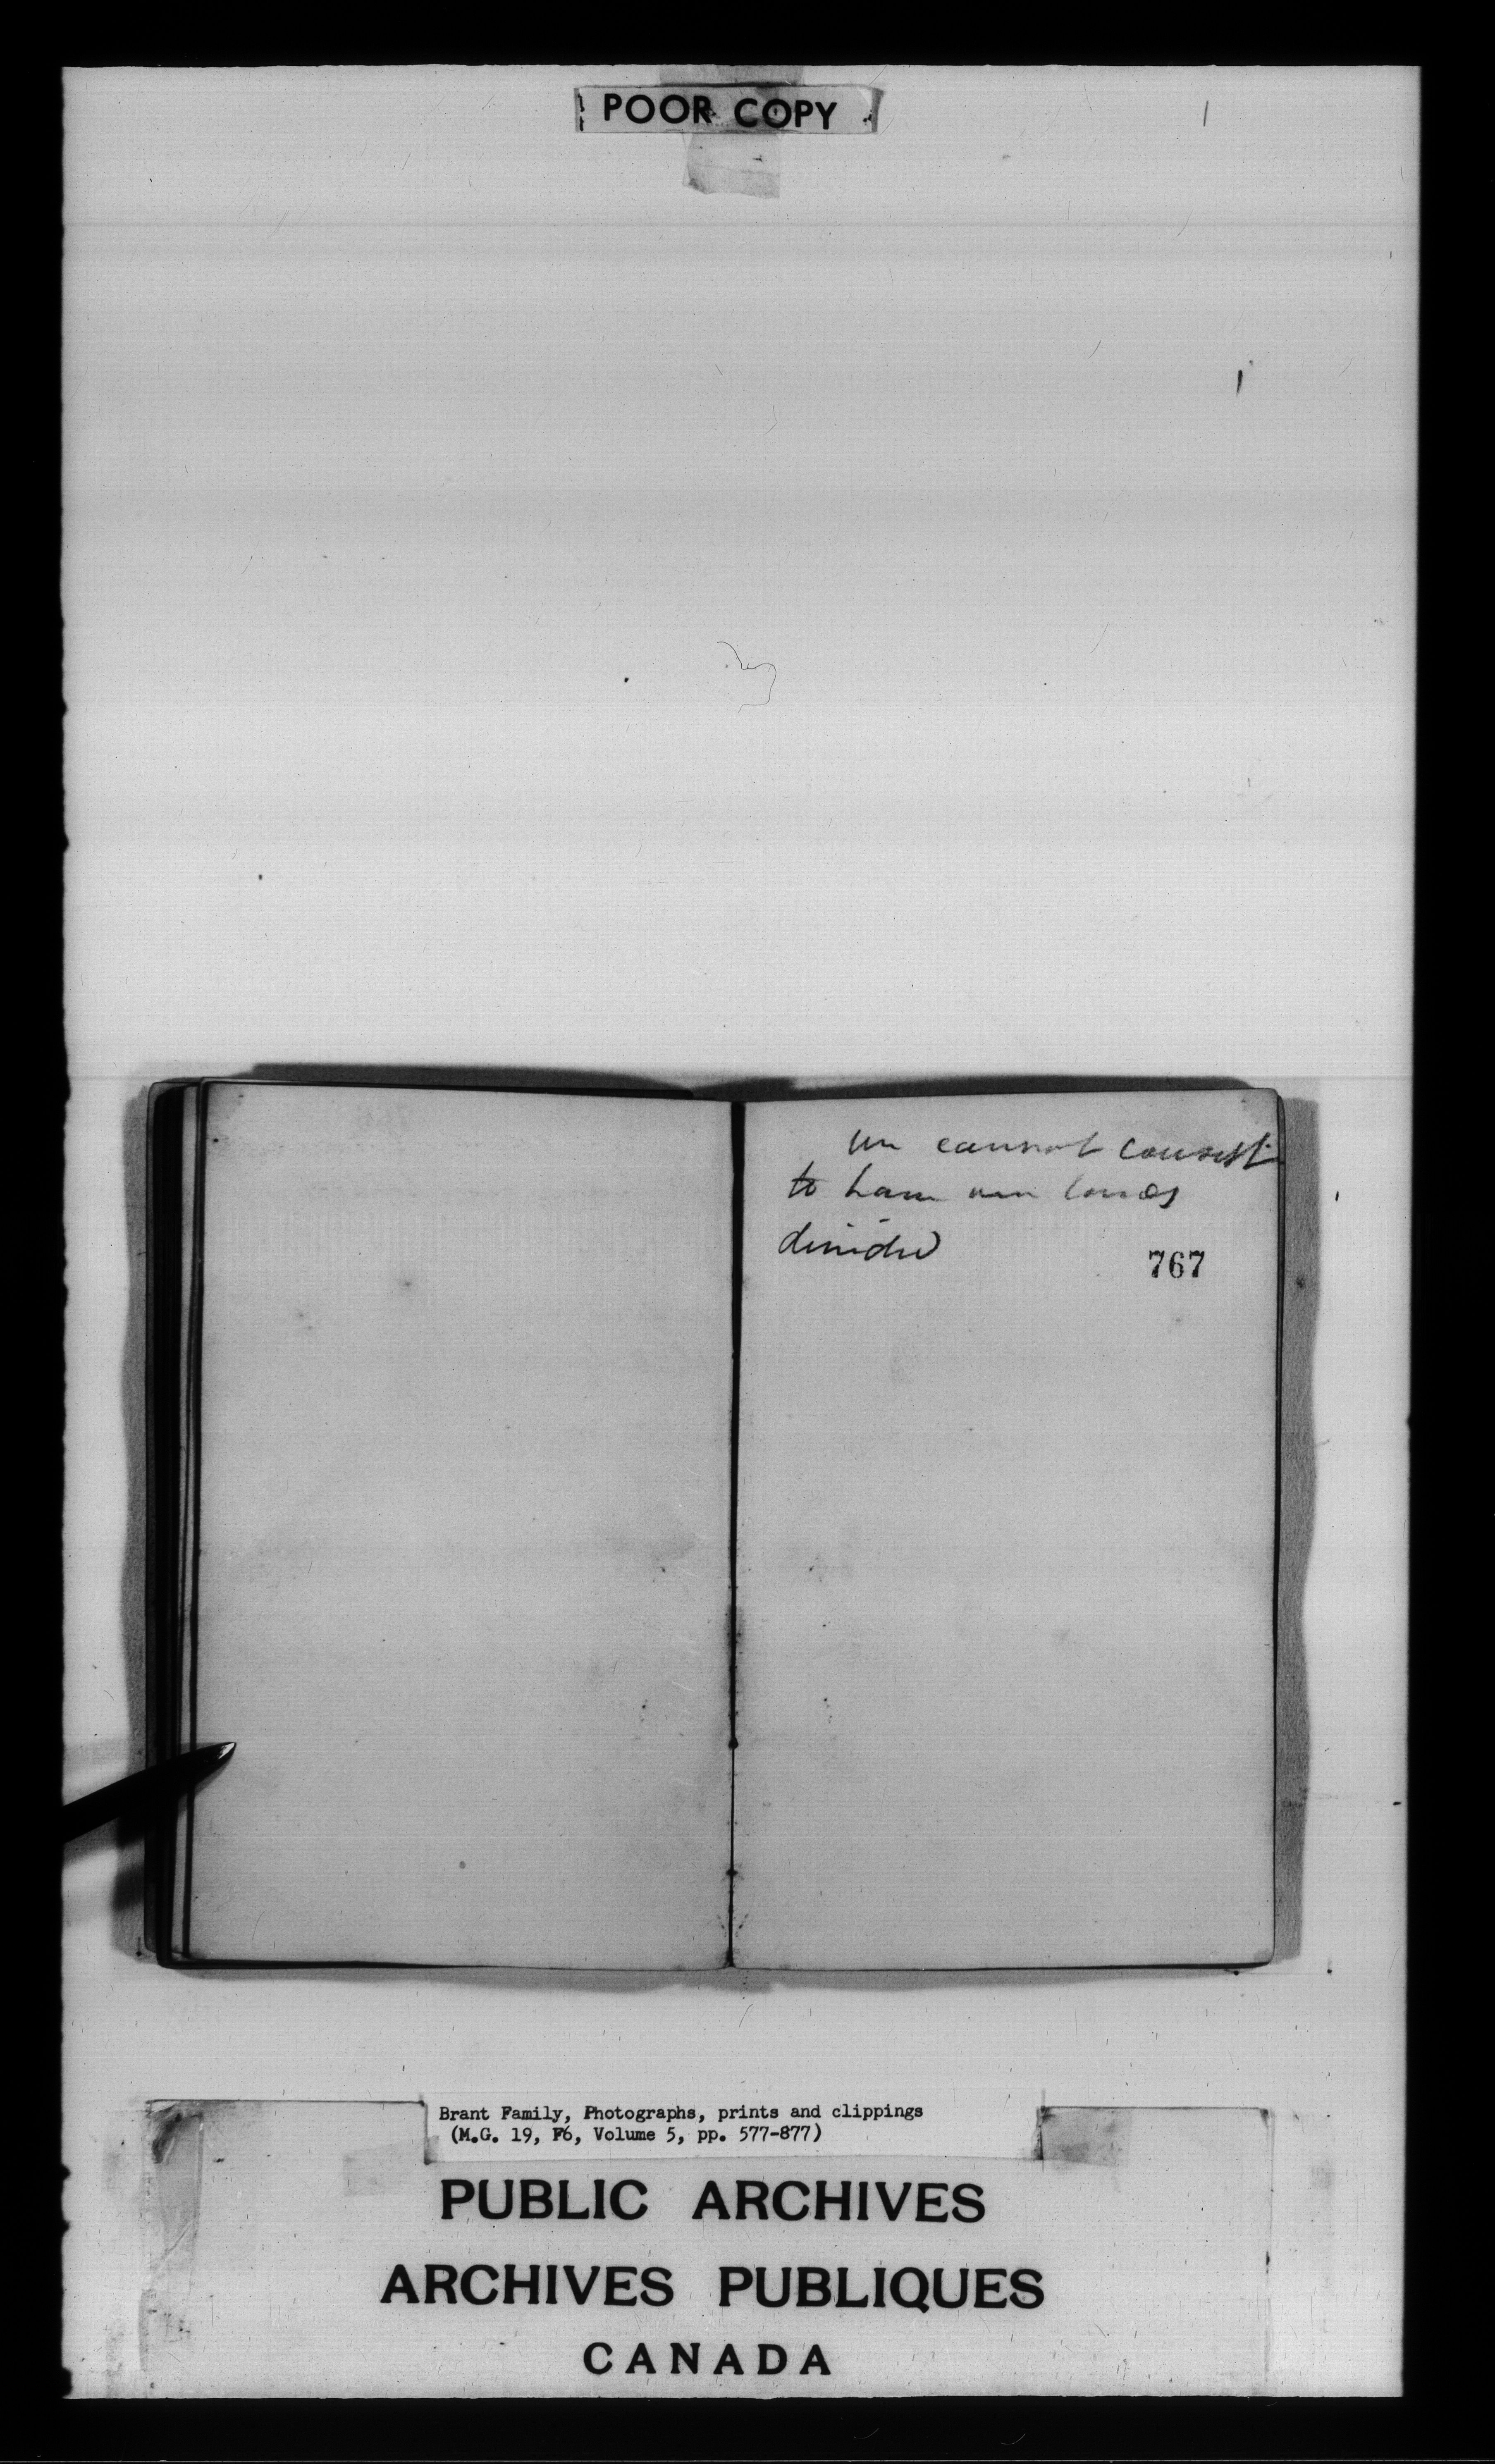 POOR COPY
we cannot consent
to have our lands
divided
767
Brant Family, Photographs, prints and clippings
(M.G. 19, F6, Volume 5, pp. 577-877)
PUBLIC ARCHIVES
ARCHIVES PUBLIQUES
CANADA